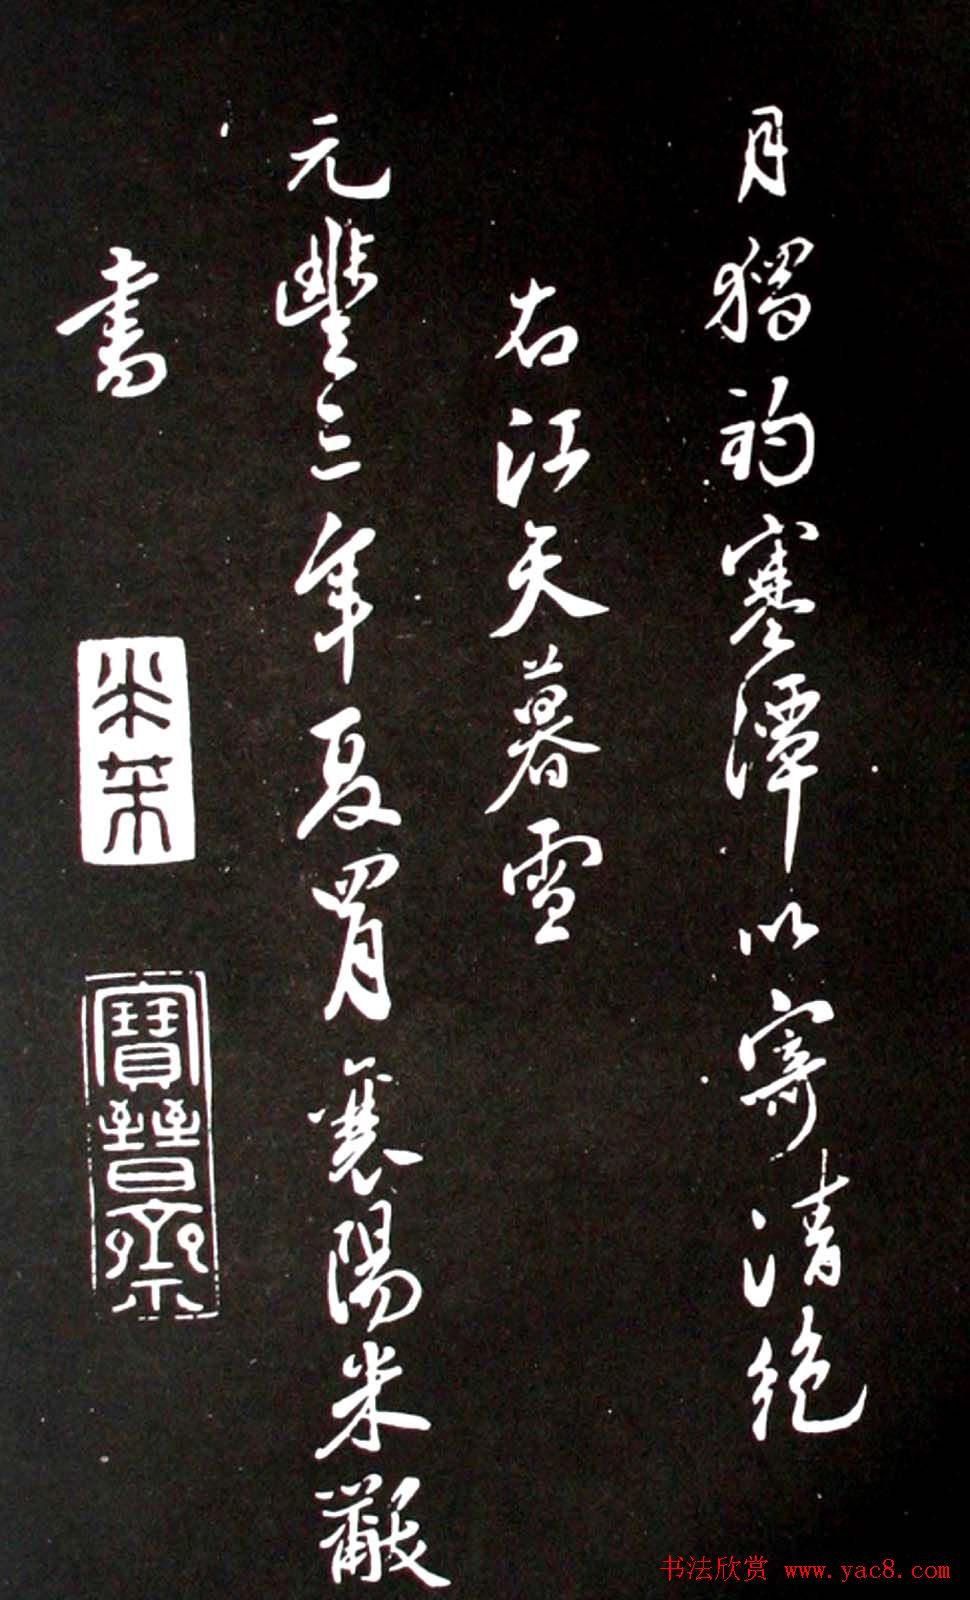 月獨釣寒潭以寄清絕
右江天暮雪
元豐三年夏四月襄陽米黻
書
米芾
寶晉齋
书法欣赏 www.yac8.com